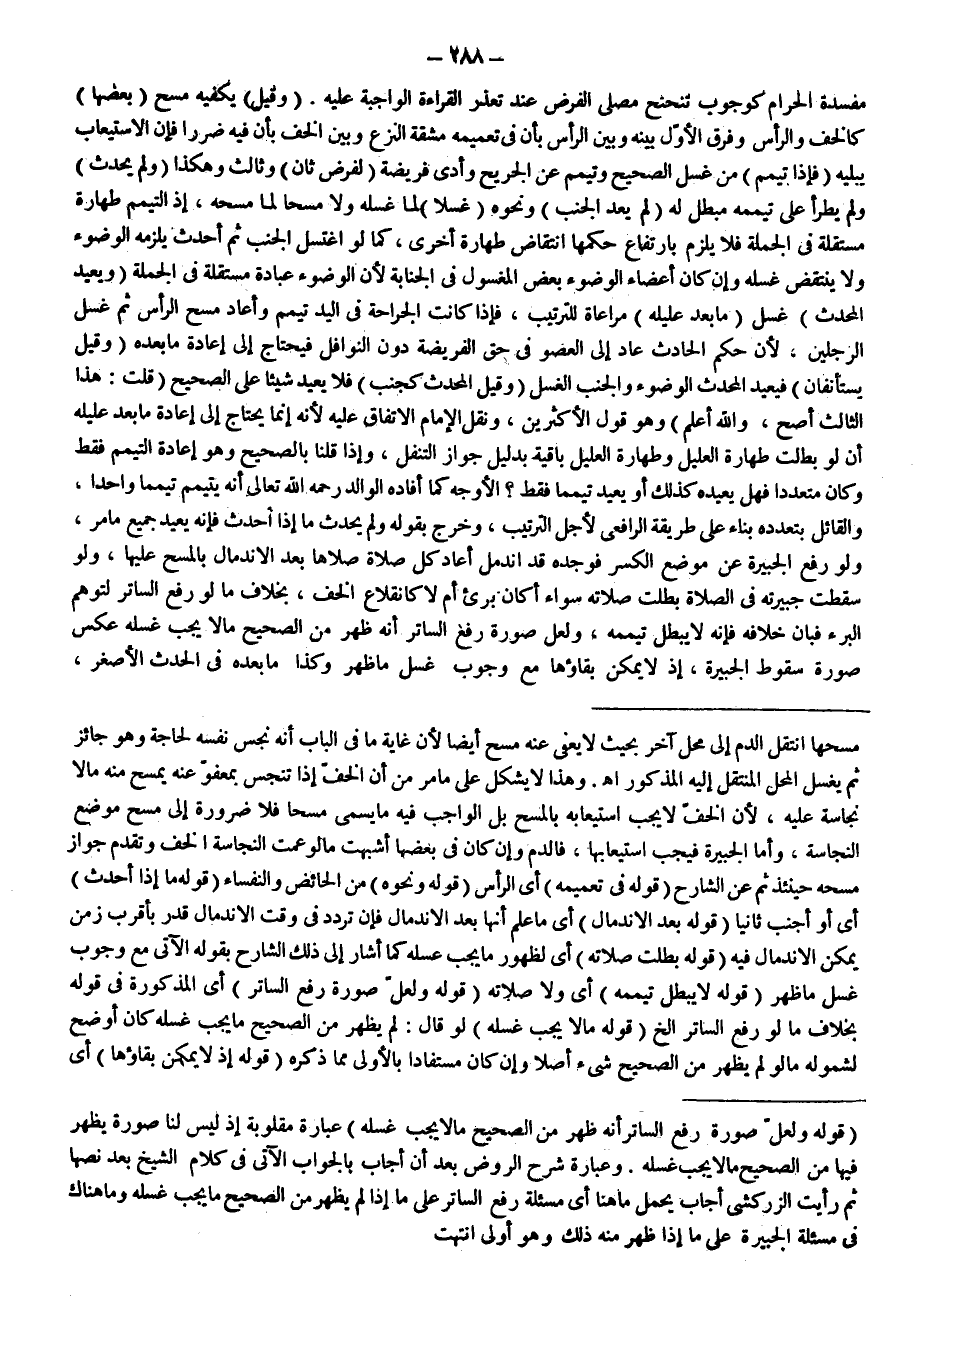 – ٢٨٨ –
مفسدة الحرام كوجوب تنحنح مصلى الفرض عند تعذر القراءة الواجبة عليه . ( وقيل) يكفيه مسح ( بعضها )
كالخف والرأس وفرق الأوّل بينه وبين الرأس بأن فى تعميمه مشقة النزع وبين الخف بأن فيه ضررا فإن الاستيعاب
يبليه ( فإذا تيمم ) من غسل الصحيح وتيمم عن الجريح وأدى فريضة ( لفرض ثان ) وثالث وهكذا ( ولم يحدث )
ولم يطرأ على تيممه مبطل له ( لم يعد الجنب ) ونحوه ( غسلا )لما غسله ولا مسحا لما مسحه ، إذ التيمم طهارة
مستقلة فى الجملة فلا يلزم بارتفاع حكمها انتقاض طهارة أخرى ، كما لو اغتسل الجنب ثم أحدث يلزمه الوضوء
ولا ينتقض غسله وإن كان أعضاء الوضوء بعض المغسول فى الجنابة لأن الوضوء عبادة مستقلة فى الجملة ( ويعيد
المحدث ) غسل ( مابعد عليله ) مراعاة للترتيب ، فإذا كانت الجراحة فى اليد تيمم وأعاد مسح الرأس ثم غسل
الرجلين ، لأن حكم الحادث عاد إلى العضو فى حق الفريضة دون النوافل فيحتاج إلى إعادة مابعده ( وقيل
يستأنفان ) فيعيد المحدث الوضوء والجنب الغسل ( وقيل المحدث كجنب) فلا يعيد شيئا على الصحيح ( قلت : هذا
الثالث أصح ، والله أعلم ) وهو قول الأكثرين ، ونقل الإمام الاتفاق عليه لأنه إنما يحتاج إلى إعادة مابعد عليله
أن لو بطلت طهارة العليل وطهارة العليل باقية بدليل جواز التنفل ، وإذا قلنا بالصحيح وهو إعادة التيمم فقط
وكان متعددا فهل يعيده كذلك أو يعيد تيمما فقط ؟ الأوجه كما أفاده الوالد رحمه الله تعالى أنه يتيمم تيمما واحدا ،
والقائل بتعدده بناء على طريقة الرافعى لأجل الترتيب ، وخرج بقوله ولم يحدث ما إذا أحدث فإنه يعيد جميع مامر ،
ولو رفع الجبيرة عن موضع الكسر فوجده قد اندمل أعاد كل صلاة صلاها بعد الاندمال بالمسح عليها ، ولو
سقطت جبيرته فى الصلاة بطلت صلاته سواء أكان برئ أم لا كانقلاع الخف ، بخلاف ما لو رفع الساتر لتوهم
البرء فبان خلافه فإنه لايبطل تيممه ، ولعل صورة رفع الساتر أنه ظهر من الصحيح مالا يجب غسله عكس
صورة سقوط الجبيرة ، إذ لايمكن بقاؤها مع وجوب غسل ماظهر وكذا مابعده فى الحدث الأصغر ،
مسحها انتقل الدم إلى محل آخر بحيث لايعنى عنه مسح أيضا لأن غاية ما فى الباب أنه نجس نفسه لحاجة وهو جائز
ثم يغسل المحل المنتقل إليه المذكور اه . وهذا لايشكل على مامر من أن الخفّ إذا تنجس بمعفوّ عنه يمسح منه مالا
نجاسة عليه ، لأن الخفّ لايجب استيعابه بالمسح بل الواجب فيه مايسمى مسحا فلا ضرورة إلى مسح موضع
النجاسة ، وأما الجبيرة فيجب استيعابها ، فالدم وإن كان فى بعضها أشبهت مالوعمت النجاسة الخف وتقدم جواز
مسحه حينئذ ثم عن الشارح ( قوله فى تعميمه ) أى الرأس ( قوله ونحوه ) من الحائض والنفساء ( قوله ما إذا أحدث )
أى أو أجنب ثانيا ( قوله بعد الاندمال ) أى ماعلم أنها بعد الاندمال فإن تردد فى وقت الاندمال قدر بأقرب زمن
يمكن الاندمال فيه ( قوله بطلت صلاته ) أى لظهور مايجب غسله كما أشار إلى ذلك الشارح بقوله الآتى مع وجوب
غسل ماظهر ( قوله لايبطل تيممه ) أى ولا صلاته ( قوله ولعلّ صورة رفع الساتر ) أى المذكورة فى قوله
بخلاف ما لو رفع الساتر الخ ( قوله مالا يجب غسله ) لو قال : لم يظهر من الصحيح مايجب غسله كان أوضح
لشموله مالو لم يظهر من الصحيح شىء أصلا وإن كان مستفادا بالأولى مما ذكره ( قوله إذ لايمكن بقاؤها ) أى
( قوله ولعلّ صورة رفع الساترأنه ظهر من الصحيح مالايجب غسله ) عبارة مقلوبة إذ ليس لنا صورة يظهر
فيها من الصحيح مالايجب غسله . وعبارة شرح الروض بعد أن أجاب بالجواب الآتى فى كلام الشيخ بعد نصها
ثم رأيت الزركشى أجاب بحمل ماهنا أى مسئلة رفع الساتر على ما إذا لم يظهرمن الصحيح مايجب غسله وماهناك
فى مسئلة الجبيرة على ما إذا ظهر منه ذلك وهو أولى انتهت